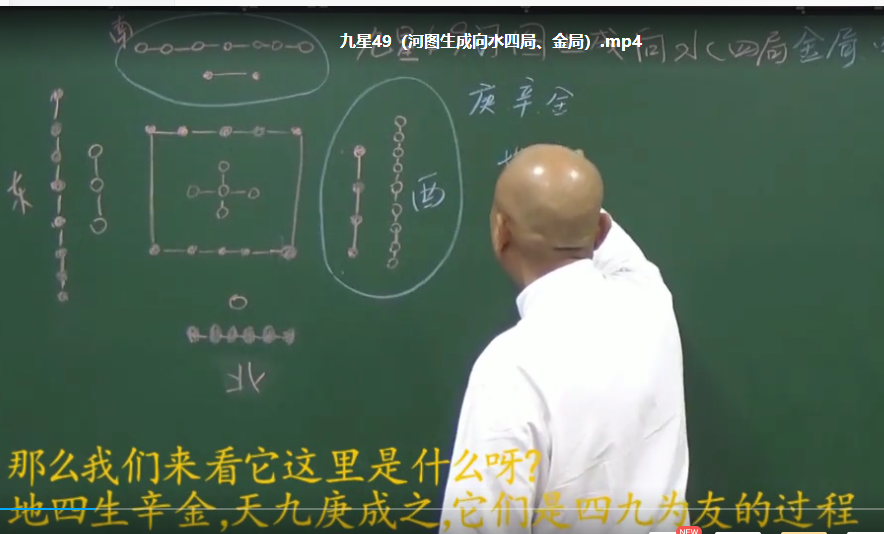 九星49（河图生成向水四局、金局）.mp4
南
庚辛金
东
西
北
那么我们来看它这里是什么呀?
地四生辛金,天九庚成之,它们是四九为友的过程
NEW